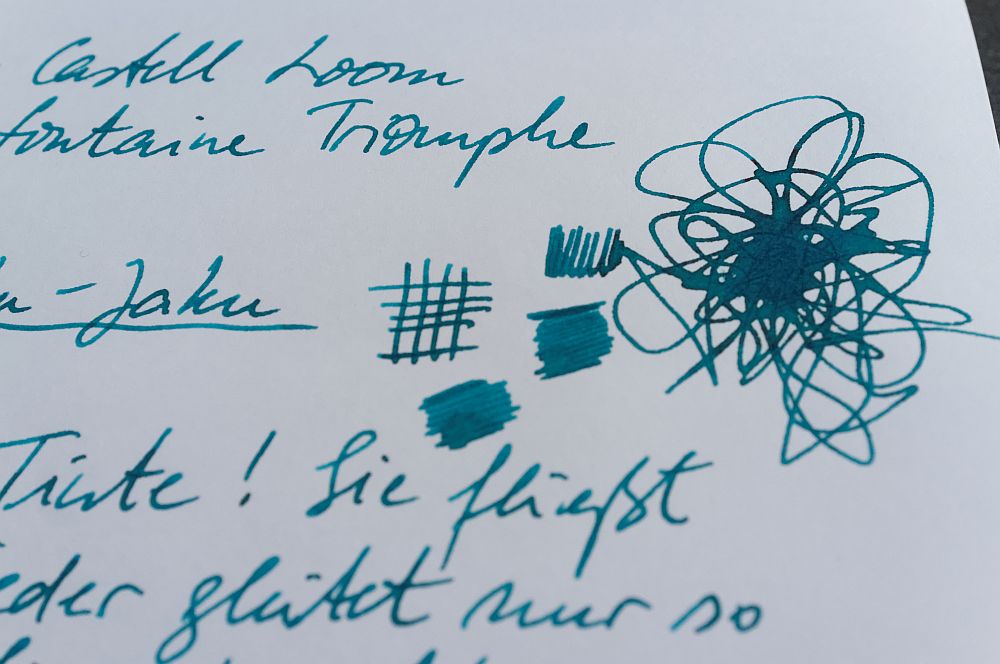 Castell Loom
fontaine Triomphe
-Jaku
Tinte! Sie fließt
eder gleitet nur so